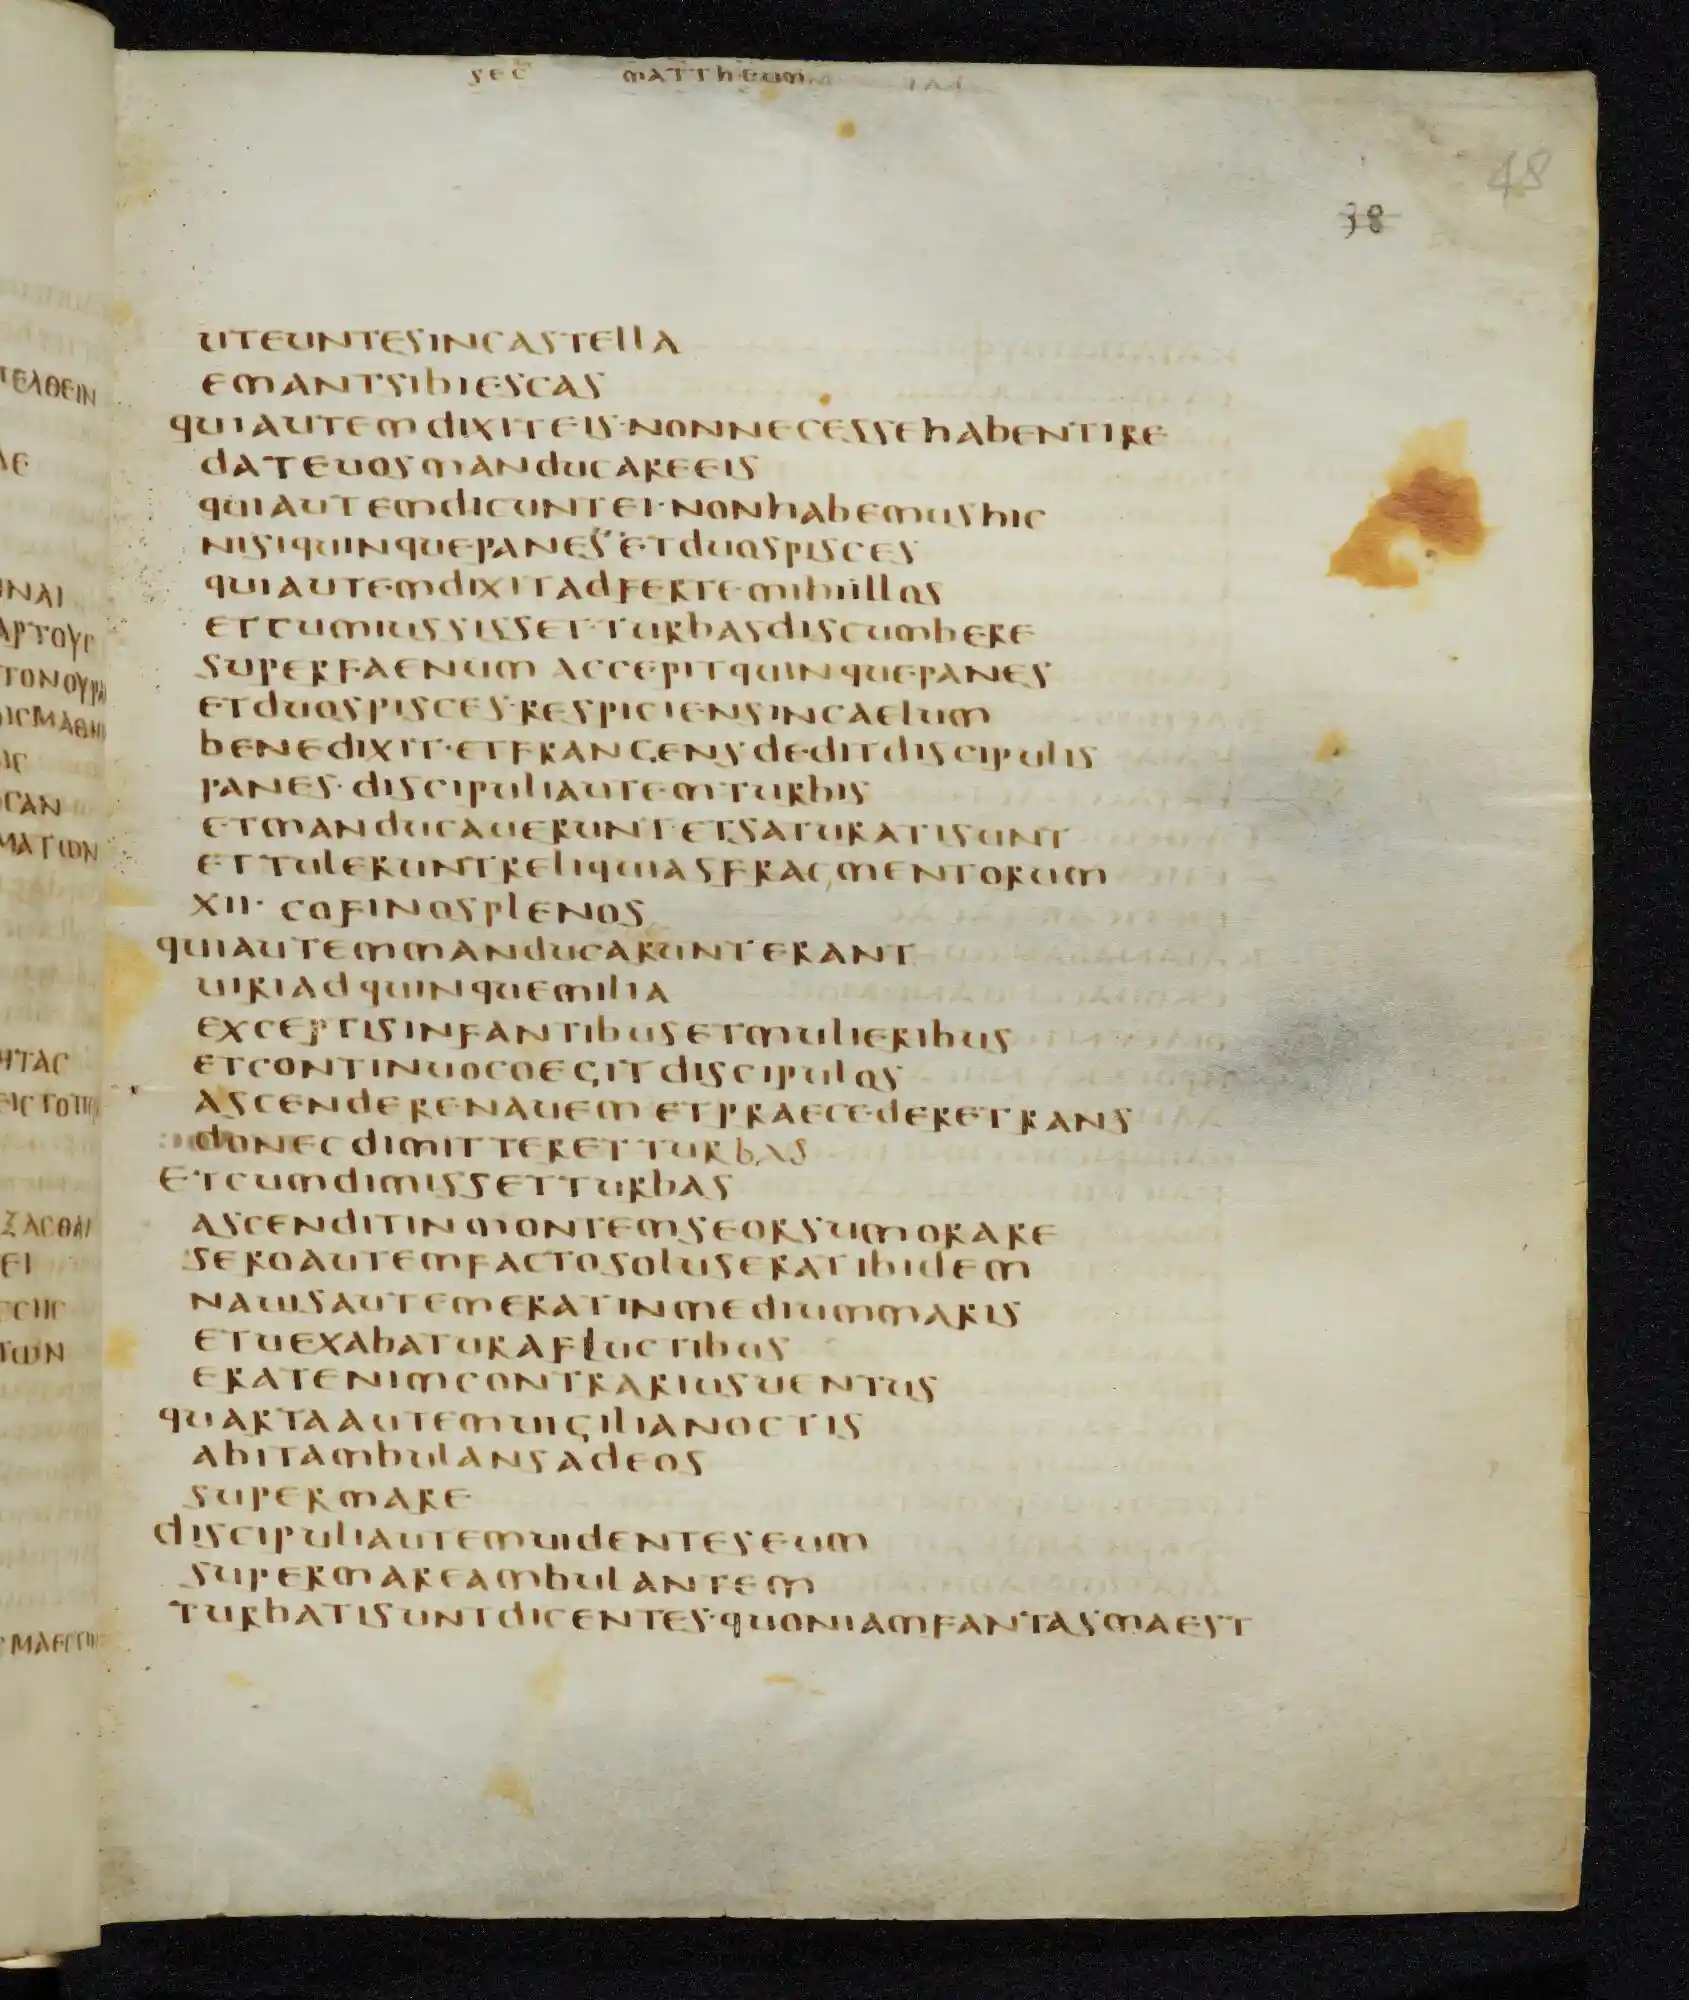 sec mattheum
48
38
uteuntesincastella
emantsibiescas
quiautemdixiteis·nonnecessehabentire
dateuosmanducareeis
quiautemdicuntei·nonhabemushic
nisiquinquepanes·etduospisces
quiautemdixitadfertemihiillos
etcumiussisset·turbasdiscumbere
superfaenum accepitquinquepanes
etduospisces·respiciensincaelum
benedixit·etfrangensdeditdiscipulis
panes·discipuliautemturbis
etmanducauerunt·etsaturatisunt
ettuleruntreliquiasfragmentorum
xii· cofinosplenos
quiautemmanducarunterant
uiriadquinquemilia
exceptisinfantibusetmulieribus
etcontinuocoegitdiscipulos
ascenderenauem etpraecederetrans
donecdimitteretturbas
etcumdimissetturbas
ascenditinmontemseorsumorare
seroautemfactosoluseratibidem
nauisautemeratinmediummaris
etuexabaturafluctibus
eratenimcontrariusuentus
quartaautemuigilianoctis
abitambulansadeos
supermare
discipuliautemuidenteseum
supermareambulantem
turbatisuntdicentes·quoniamfantasmaest